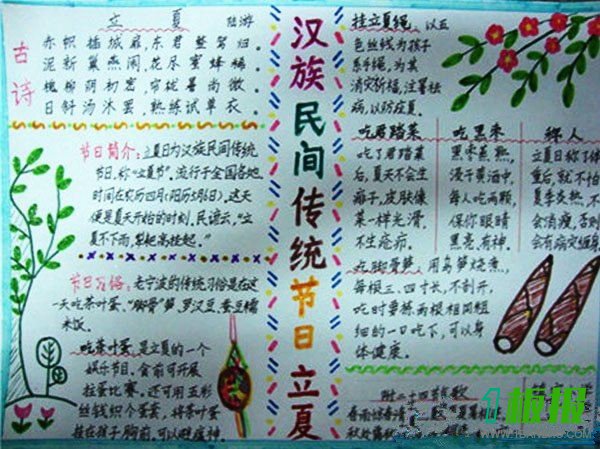 立夏 陆游
古诗
赤帜插城扉,东君整驾归。
泥新巢燕闹,花尽蜜蜂稀。
槐柳阴初密,帘栊暑尚微。
日斜汤沐罢,熟练试单衣。
节日简介:立夏日为汉族民间传统
节日,称“立夏节”。流行于全国各地
时间在农历四月(阳历5月6日),这天
便是夏天开始的时刻。民谚云,“立
夏不下雨,犁耙高挂起。”
节日习俗:老宁波的传统习俗是在这
一天吃茶叶蛋、“脚骨”笋、罗汉豆、蚕豆糯
米饭。
吃茶叶蛋是立夏的一个
娱乐节目。食前可开展
拄蛋比赛。还可用五彩
丝钱织个蛋套,将茶叶蛋
挂在孩子胸前,可以避瘟神。
汉族民间传统节日立夏
挂立夏绳,以五
色丝钱为孩子
系手绳,为其
消灾祈福,注暑祛
病,以防疰夏。
吃君踏菜
吃了君踏菜
后,夏天不会生
痱子,皮肤像
菜一样光滑,
不生疮疖。
吃黑枣
黑枣蒸熟,
浸于黄酒中,
每人吃两颗,
保你眼睛
黑亮,有神。
称人
立夏日称了体
重后,就不怕
夏季炎热,不
会消瘦,否则
会有病灾缠身
吃脚骨笋,用乌笋烧煮,
每根三、四寸长,不剖开,
吃时要拣两根相同粗
细的一口吃下,可以身
体健康。
附:二十四节气歌